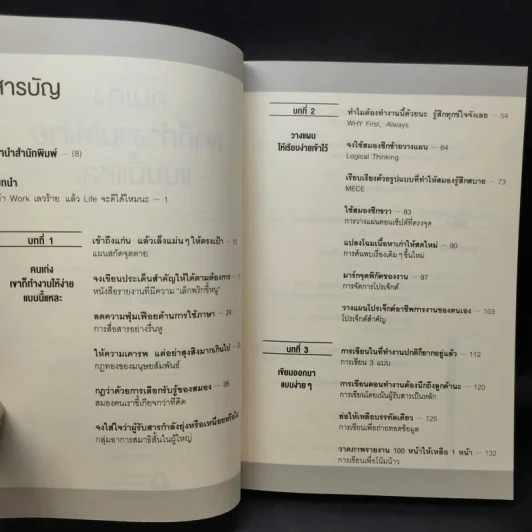 สารบัญ
คำนำสำนักพิมพ์ ··· (8)
บทนำ
ถ้า Work เลวร้าย แล้ว Life จะดีได้ไหมนะ ··· 1
บทที่ 1
คนเก่ง
เขาก็ทำงานให้ง่าย
แบบนี้แหละ
เข้าถึงแก่น แล้วเล็งแม่นๆ ให้ตรงเป้า
แผนสกัดจุดตาย
จงเขียนประเด็นสำคัญให้ได้ตามต้องการ
หนังสือรายงานที่มีความ "เล็กพริกขี้หนู"
ลดความฟุ่มเฟือยด้านการใช้ภาษา ··· 24
การสื่อสารอย่างรื่นหู
ให้ความเคารพ แต่อย่าสูงส่งมากเกินไป
กฎทองของมนุษยสัมพันธ์
กฎว่าด้วยการเลือกรับรู้ของสมอง ··· 36
สมองคนเราขี้เกียจกว่าที่คิด
จงใส่ใจว่าผู้รับสารกำลังยุ่งหรือเหนื่อยหรือไม่
กลุ่มอาการสมาธิสั้นในผู้ใหญ่
บทที่ 2
วางแผน
ให้เรียบง่ายเข้าไว้
ทำไมต้องทำงานนี้ด้วยนะ รู้สึกทุกข์ใจจังเลย ··· 54
WHY First, Always
จงใช้สมองซีกซ้ายวางแผน ··· 64
Logical Thinking
เรียบเรียงด้วยรูปแบบที่ทำให้สมองรู้สึกสบาย ··· 73
MECE
ใช้สมองซีกขวา ··· 83
การวางแผนคอนเซ็ปต์ที่ตรงจุด
แปลงโฉมเนื้อหาเก่าให้สดใหม่ ··· 90
การค้นพบเรื่องเดิมๆ ขึ้นใหม่
มาร์กจุดพิกัดของงาน ··· 97
การจัดการโปรเจ็กต์
วางแผนโปรเจ็กต์อาชีพการงานของตนเอง ··· 103
โปรเจ็กต์สำคัญ
บทที่ 3
เขียนออกมา
แบบง่ายๆ
การเขียนในที่ทำงานปกติก็ยากอยู่แล้ว ··· 112
การเขียน 3 แบบ
การเขียนตอนทำงานต้องนึกถึงลูกค้านะ ··· 120
การเขียนโดยเน้นผู้รับสารเป็นหลัก
ย่อให้เหลือบรรทัดเดียว ··· 125
การเขียนเพื่อถ่ายทอดข้อมูล
วาดภาพรายงาน 100 หน้าให้เหลือ 1 หน้า ··· 132
การเขียนเพื่อโน้มน้าว